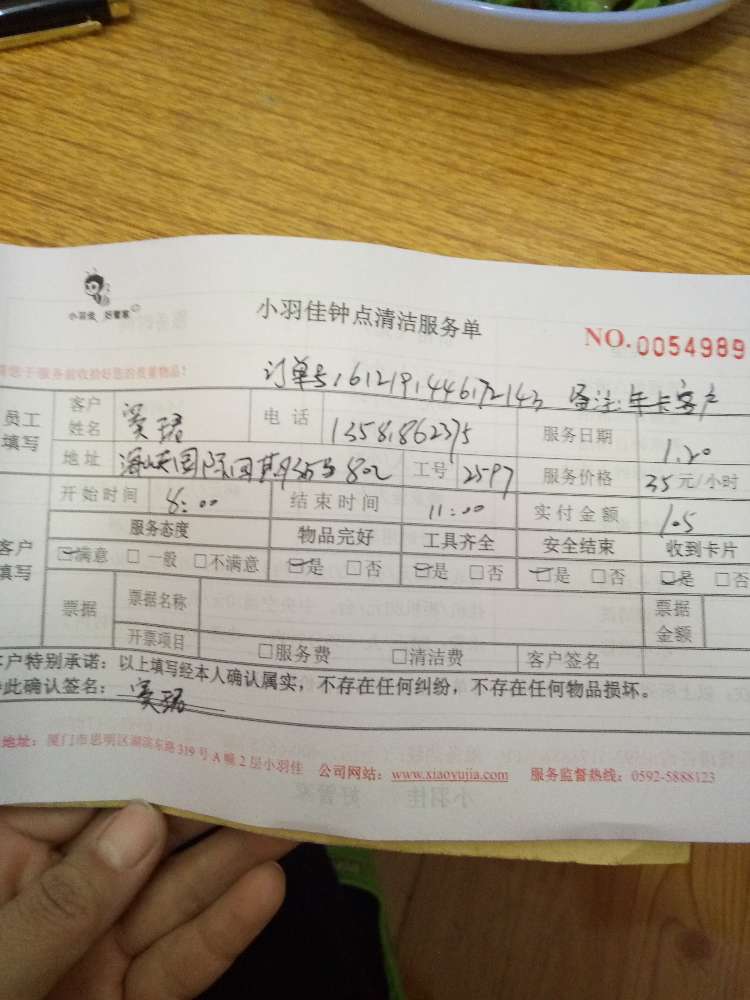 小羽佳 好管家
小羽佳钟点清洁服务单
NO.0054989
订单号:61219144617214 备注:年卡客户
员工填写 客户姓名 窦珺 电话 13581862375 服务日期 1.20
地址 802 工号 2597 服务价格 35元/小时
客户填写 开始时间 8:00 结束时间 11:00 实付金额 105
服务态度 物品完好 工具齐全 安全结束 收到卡片
☑满意 □一般 □不满意 ☑是 □否 ☑是 □否 ☑是 □否 ☑是 □否
票据 票据名称 票据金额
开票项目 □服务费 □清洁费 客户签名
客户特别承诺：以上填写经本人确认属实，不存在任何纠纷，不存在任何物品损坏。
此确认签名：窦珺
地址：厦门市思明区湖滨东路319号A幢2层小羽佳 公司网站：www.xiaoyujia.com 服务监督热线：0592-5888123